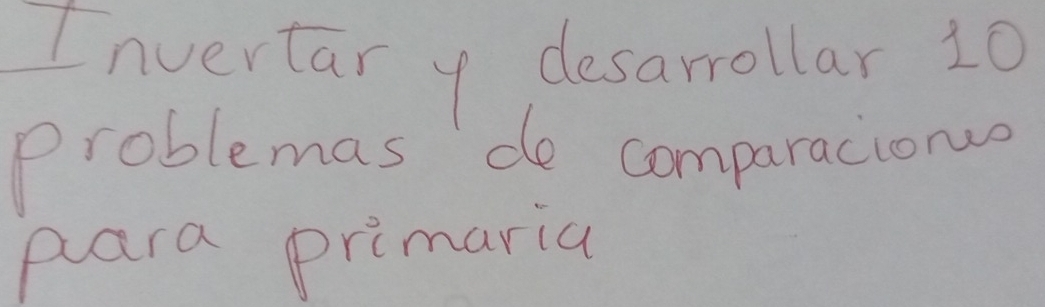 Invertar y desarrollar 10
problemas de comparaciones
para primaria